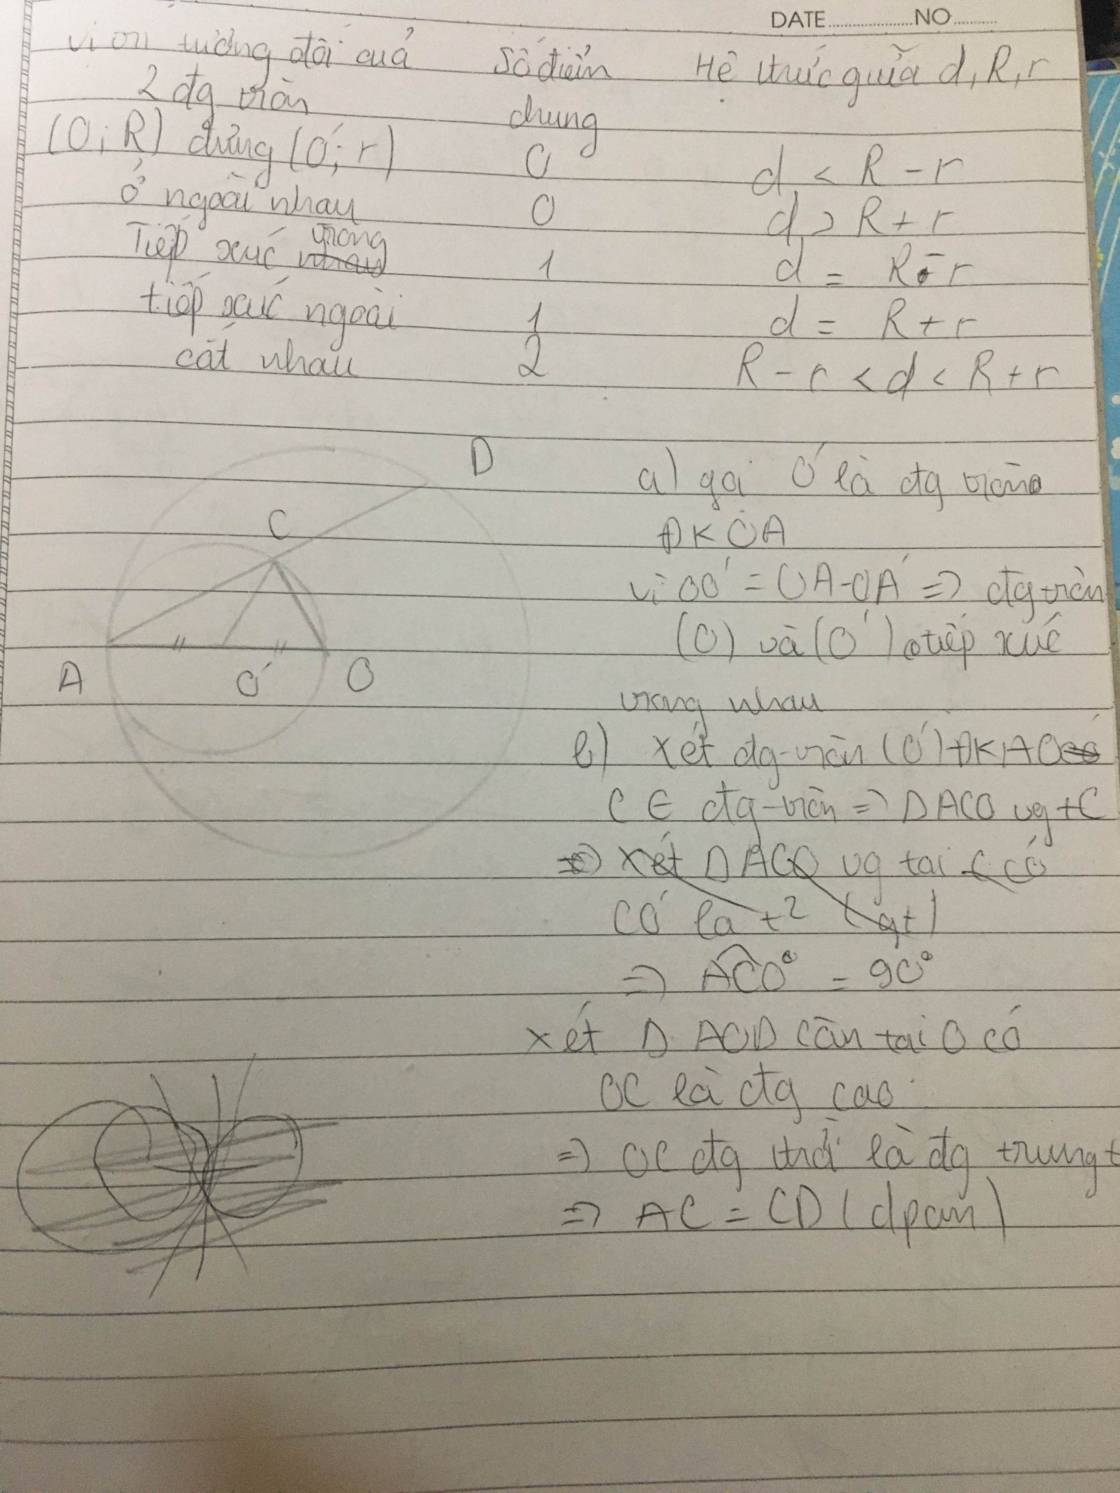 DATE............NO.........
Vị trí tương đối của Số điểm Hệ thức giữa d, R, r
2 đg tròn chung
(O; R) đựng (O'; r) 0 d < R - r
ở ngoài nhau 0 d > R + r
Tiếp xúc trong 1 d = R - r
tiếp xúc ngoài 1 d = R + r
cắt nhau 2 R - r < d < R + r
D
C
A O' O
a) gọi O' là đg tròn
ĐK OA
vì OO' = OA - O'A => đg tròn
(O) và (O') tiếp xúc
trong nhau
b) xét đg tròn (O') ĐK AO
C ∈ đg tròn => Δ ACO vg t C
=> xét Δ ACO vg tại C có
CO' là t² (gt)
=> ACO = 90°
xét Δ AOD cân tại O có
OC là đg cao
=> OC đg thời là đg trung t
=> AC = CD (đpcm)